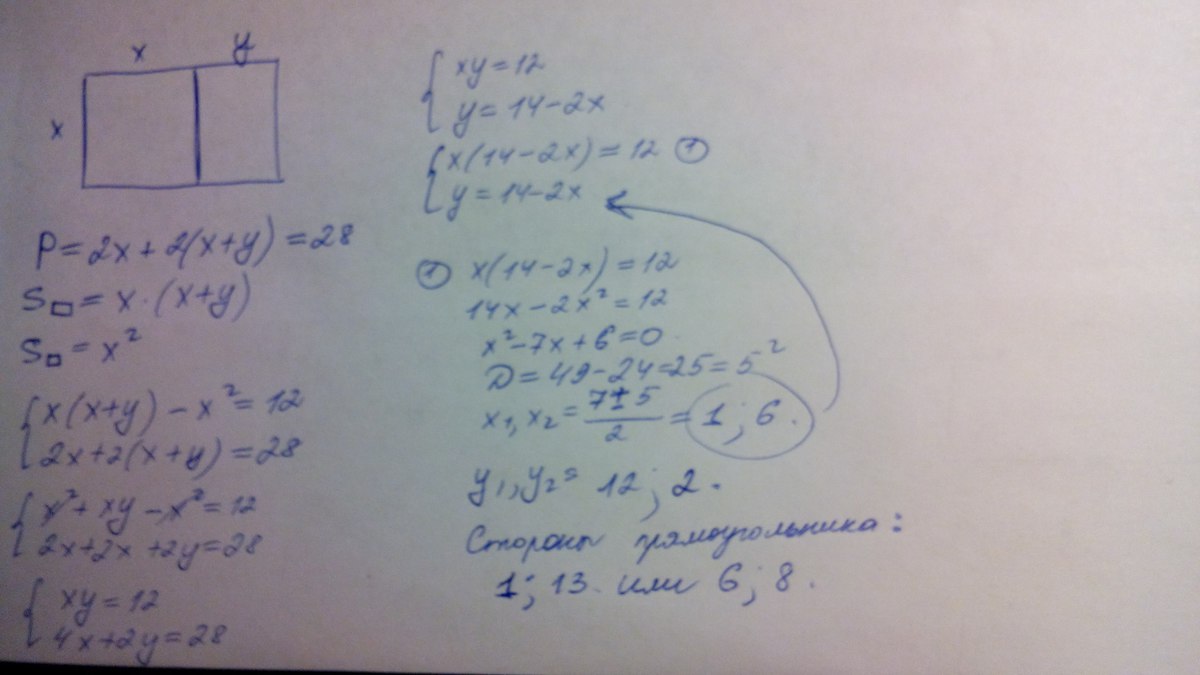 x y
x
P = 2x + 2(x+y) = 28
S▭ = x · (x+y)
S□ = x²
{ x(x+y) - x² = 12
2x+2(x+y) = 28
{ x² + xy - x² = 12
2x+2x+2y=28
{ xy = 12
4x+2y=28
{ xy = 12
y = 14-2x
{ x(14-2x) = 12 ①
y = 14-2x
① x(14-2x) = 12
14x - 2x² = 12
x² - 7x + 6 = 0
D = 49-24=25=5²
x₁, x₂ = (7±5)/2 = 1; 6.
y₁, y₂ = 12; 2.
Стороны прямоугольника:
1; 13. или 6; 8.